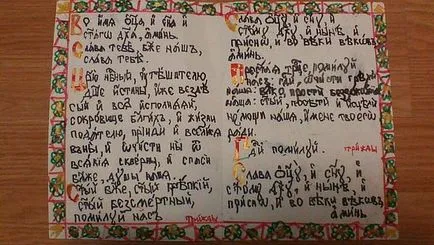 Во имя ѻ҃ца, и҆ сн҃а и҆
ст҃агѡ дх҃а, а҆минь.
Слава тебѣ, бж҃е нашъ,
слава тебѣ.
Цр҃ю нб҃ный, оу҆тѣшителю,
дш҃е истины, и҆же вездѣ
сый и҆ всѧ исполнѧѧй,
сокровище благихъ, и҆ жизни
подателю, прїиди и҆ вселисѧ
въ ны, и҆ ѡ҆чисти ны ѿ
всѧкїѧ скверны, и҆ спаси
бл҃же, дꙋшы нашѧ.
Ст҃ый бж҃е, ст҃ый крѣпкїй,
ст҃ый безсмертный,
помилꙋй насъ трижды
Слава ѻ҃цꙋ и҆ сн҃ꙋ, и҆
ст҃омꙋ дх҃ꙋ, и҆ нн҃ѣ, и҆
приснѡ, и҆ во вѣки вѣкѡвъ
а҆минь.
Прест҃аѧ трⷪ҇це, помилꙋй
насъ: гдⷭ҇и, ѡ҆чисти грѣхи
нашѧ: влⷣко, прости беззакѡнїѧ
наша: ст҃ый, посѣти и҆ и҆сцѣли
немѡщи нашѧ, имене твоегѡ
ради.
Гдⷭ҇и помилꙋй. трижды
Слава ѻ҃цꙋ, и҆ сн҃ꙋ, и҆
ст҃омꙋ дх҃ꙋ, и҆ нн҃ѣ, и҆
приснѡ, и҆ во вѣки вѣкѡвъ
а҆минь